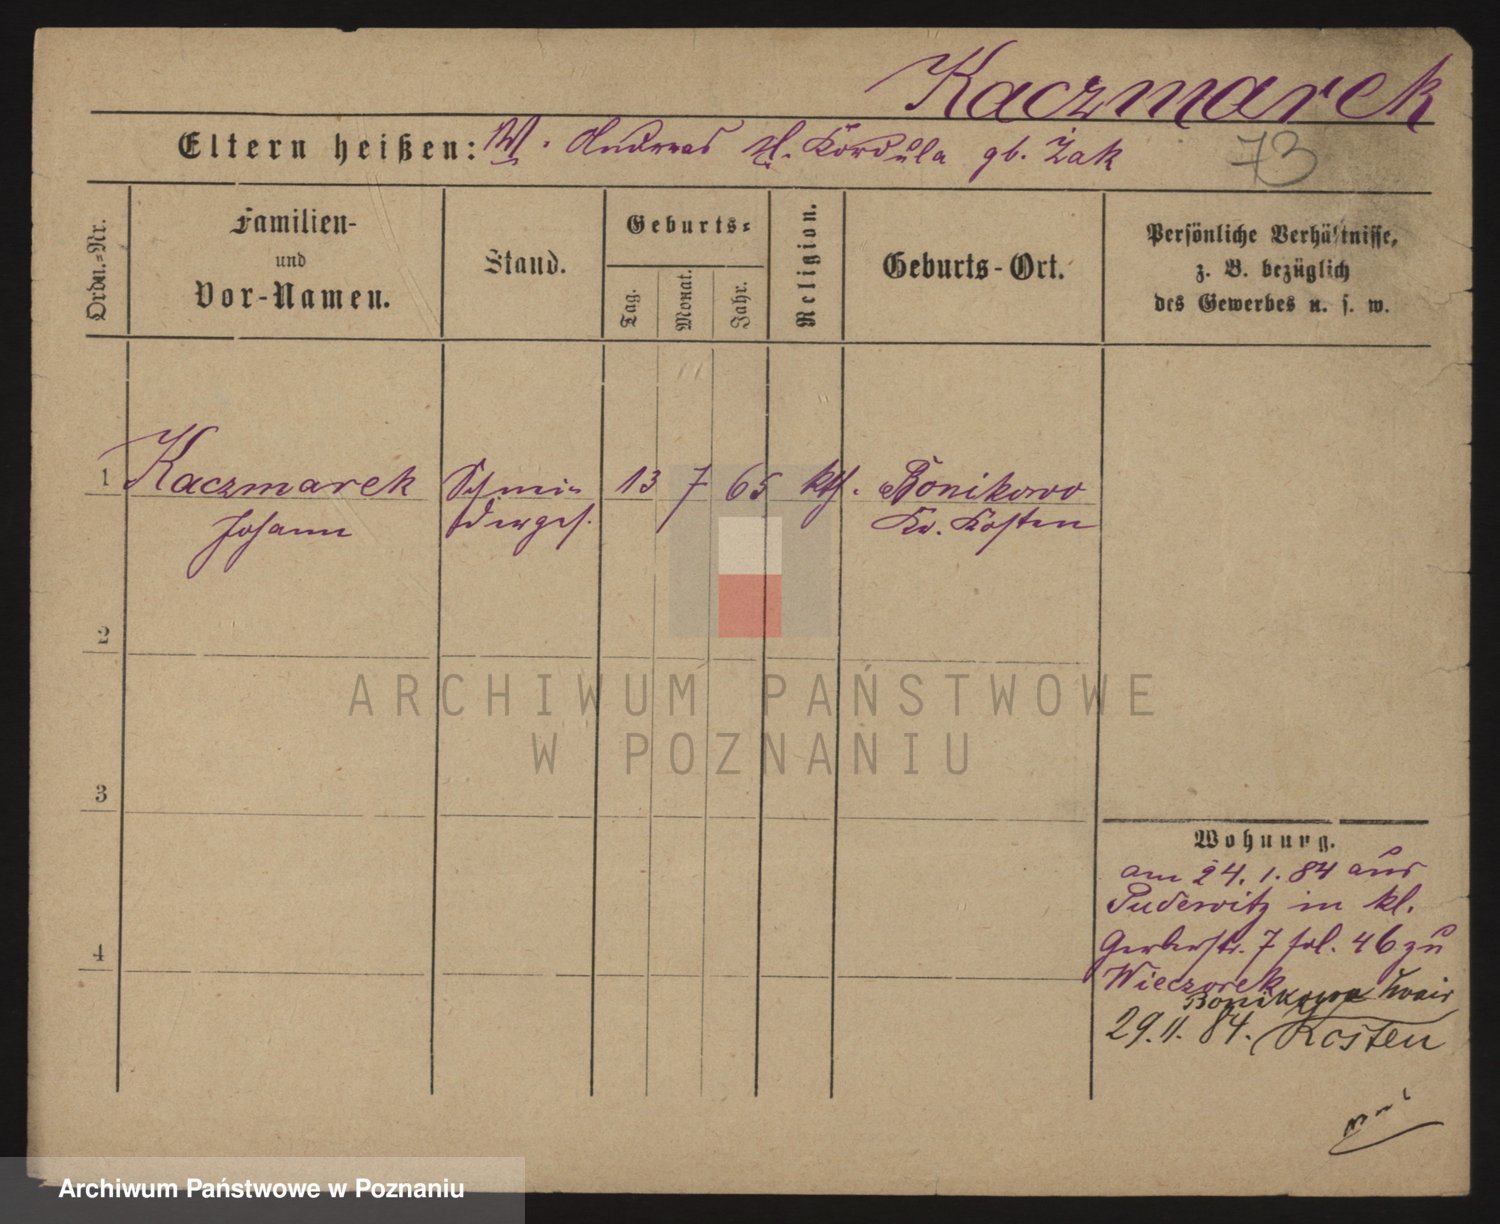 Kaczmarek
Eltern heißen: W. Andreas u. Kordula gb. Żak
73
Ordn.-Nr.
Familien-
und
Vor-Namen.
Stand.
Geburts-
Tag.
Monat.
Jahr.
Religion.
Geburts-Ort.
Persönliche Verhältnisse,
z. B. bezüglich
des Gewerbes u. s. w.
1 Kaczmarek Schmie- 13 7 65 kth. Bonikowo
Johann deges. Kr. Kosten
2
3
4
Wohnung.
am 24. 1. 84 aus
Pudewitz in kl.
Gerberstr. 7 fol. 46 zu
Wieczorek
Bonikowo Kreis
29. 11. 84. Kosten
ARCHIWUM PAŃSTWOWE
W POZNANIU
Archiwum Państwowe w Poznaniu